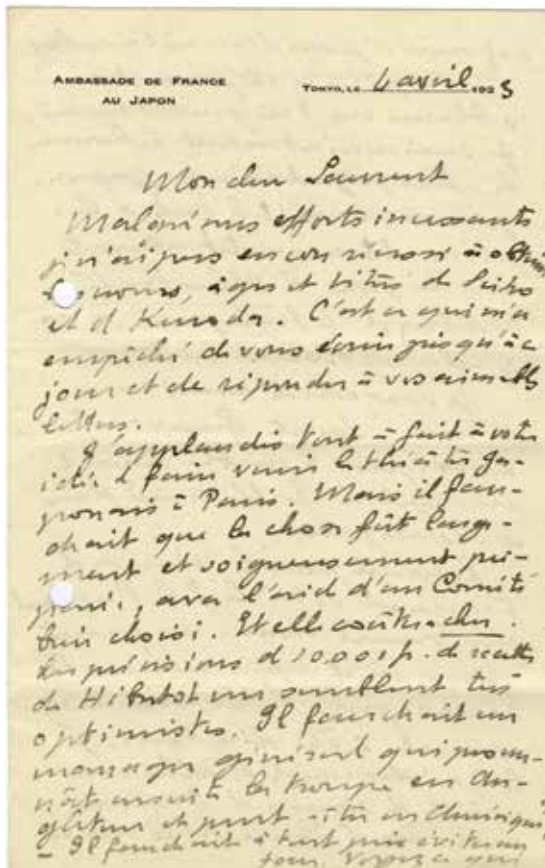 AMBASSADE DE FRANCE
AU JAPON
TOKYO, LE 4 avril 1923
Mon cher Laurent
Malgré mes efforts incessants
je n'ai pas encore réussi à obtenir
noms, âges et titres de Seiho
et de Kuroda. C'est ce qui m'a
empêché de vous écrire jusqu'à ce
jour et de répondre à vos aimables
lettres.
J'applaudis tout à fait à votre
idée de faire venir le théâtre ja-
ponais à Paris. Mais il fau-
drait que la chose fût longue-
ment et soigneusement pré-
parée, avec l'aide d'un Comité
bien choisi. Et elle coûtera cher.
Les prévisions de 10.000 f. de recettes
de Hébertot me semblent très
optimistes. Il faudrait un
manager général qui prome-
nât ensuite la troupe en An-
gleterre et peut-être en Amérique
- Il faudrait à tout prix éviter un
four.